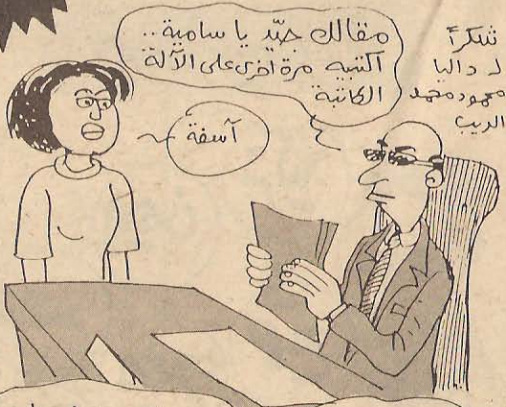 مقالك جيّد يا سامية..
اكتبيه مرة اخرى على الآلة
الكاتبة
آسفة
شكراً
لـ داليا
محمود محمد
الديب